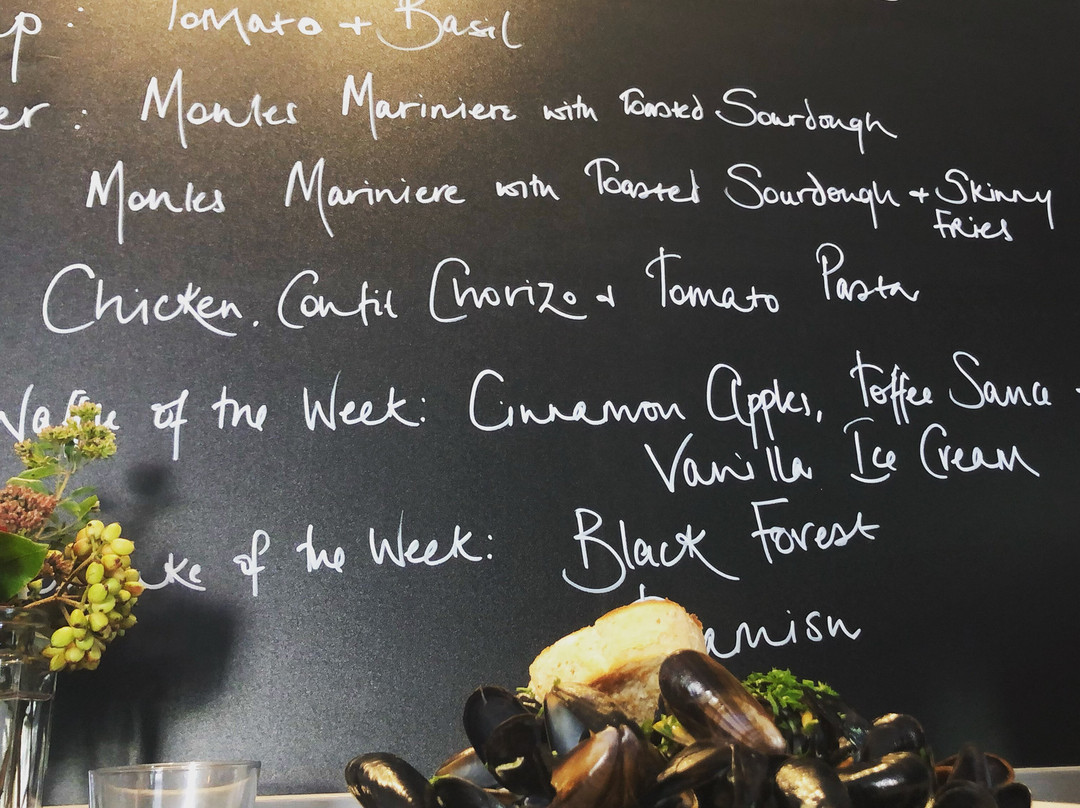 Tomato + Basil
Moules Mariniere with Toasted Sourdough
Moules Mariniere with Toasted Sourdough + Skinny
Fries
Chicken, Confit Chorizo + Tomato Pasta
of the Week: Cinnamon Apples, Toffee Sauce +
Vanilla Ice Cream
of the Week: Black Forest